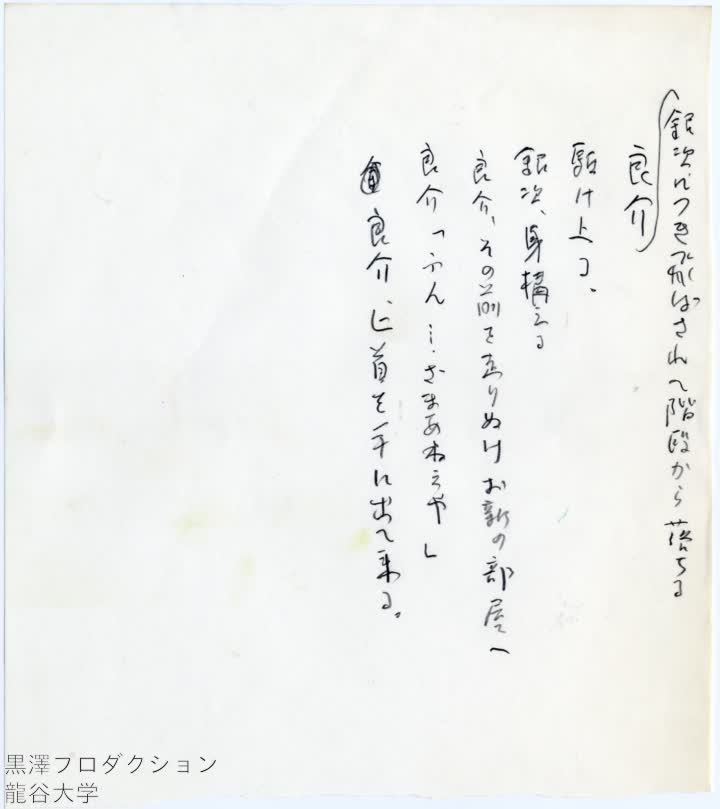 銀次につき飛ばされて階段から落ちる
良介
駈け上る。
銀次、身構える
良介、その前を走りぬけお新の部屋へ
良介「ふん…ざまあねえや」
良介、匕首を手に出て来る。
黒澤プロダクション
龍谷大学